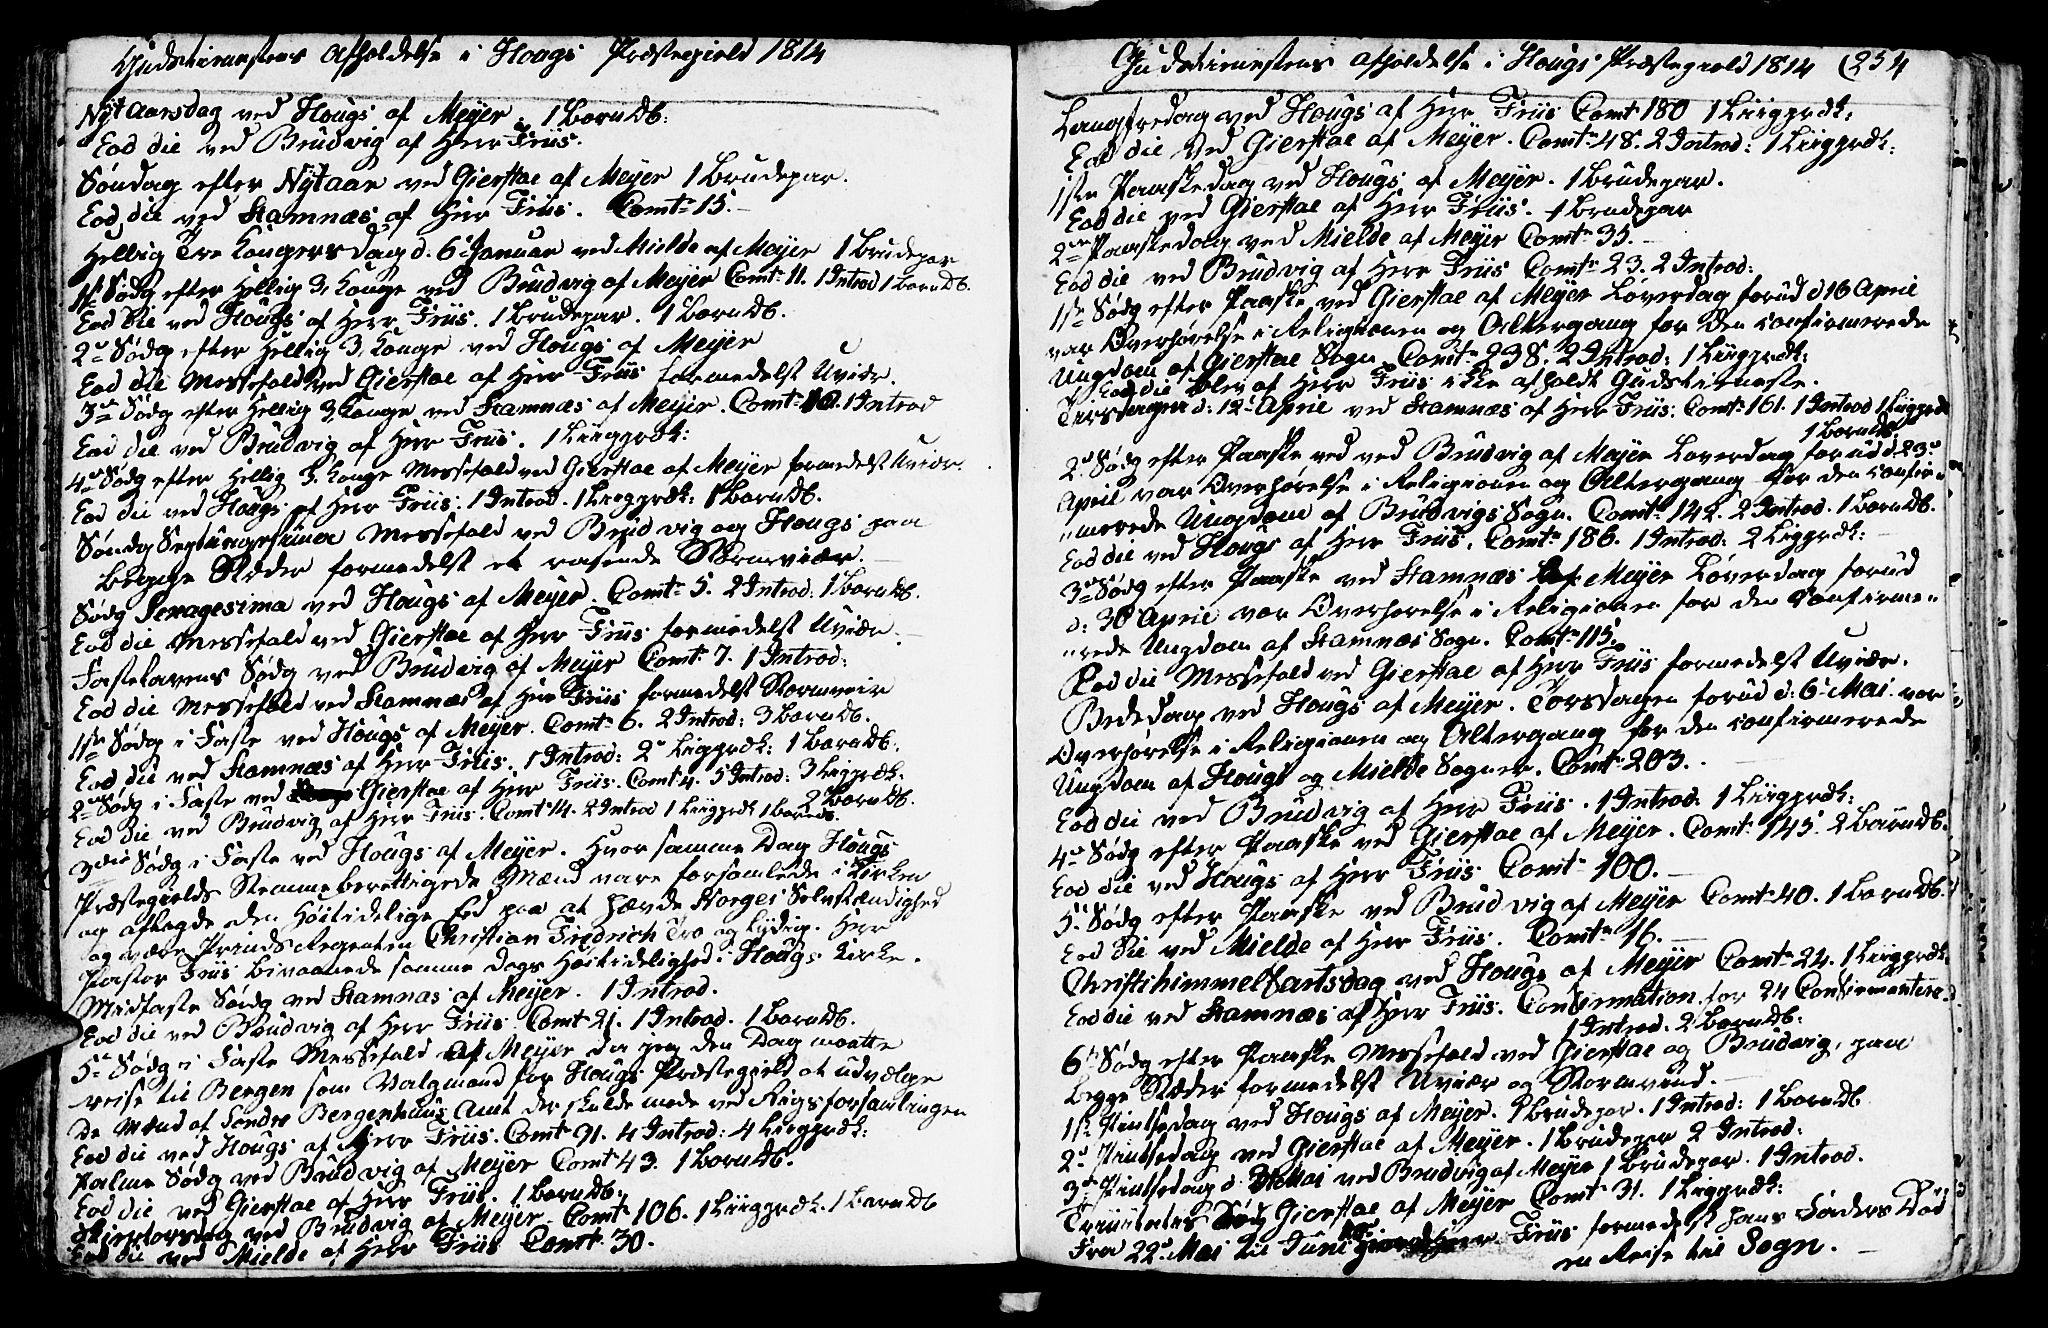 Gudstienestens Afholdelse i Hougs Præstegield 1814
Nÿtaarsdag ved Hougs af Meÿer. 1 Barn Db:
Eod die ved Brudvig af Herr Friis.
Søndag efter Nÿtaar ved Gierstae af Meÿer 1 Brudepar.
Eod die ved Stamnæs af Herr Friis. Comt: 15.
Hellig Tre Kongers Dag d. 6 Januar ved Mielde af Meÿer 1 Brudepar
1ste Sødg efter Hellig 3 Konge ved Brudvig af Meÿer Comt: 11. 1 Introd 1 Barn Db.
Eod die ved Hougs af Herr Friis. 1 Brudepar. 1 Barn Db.
2den Sødg efter Hellig 3 Konge ved Hougs af Meÿer
Eod die Messefald ved Gierstae af Herr Friis formedelst Uveir.
3die Sødg efter Hellig 3 Konge ved Stamnæs af Meÿer. Comt: 10. 1 Introd
Eod die ved Brudvig af Herr Friis. 1 Liigprdk:
4de Sødg efter Hellig 3 Konge Messefald ved Gierstae af Meÿer formedelst Uveir.
Eod die ved Hougs af Herr Friis. 1 Introd. 1 Liigprdk: 1 Barn Db.
Søndg Septuagesima Messefald ved Brudvig og Hougs paa
begge Stæder formedelst et rasende Stormveir.
Sødg Sexagesima ved Hougs af Meÿer. Comt: 5. 2 Introd: 1 Barn Db.
Eod die Messefald ved Gierstae af Herr Friis formedelst Uveir.
Fastelavens Sødg ved Brudvig af Meÿer Comt: 7. 1 Introd:
Eod die Messefald ved Stamnæs af Herr Friis formedelst Stormveir
1ste Sødg i Faste ved Hougs af Meÿer. Comt: 6. 2 Introd: 3 Barn Db.
Eod die ved Stamnæs af Herr Friis. 1 Introd: 2 Ligprdk: 1 Barn Db.
2den Sødg i Faste ved Gierstae af Herr Friis. Comt 4. 5 Introd: 3 Ligprdk: 2 Barn Db.
Eod die ved Brudvig af Herr Friis. Comt 14. 2 Introd 1 Liigprdk 1 Barn Db.
3die Sødg i Faste ved Hougs af Meÿer. Hvor samme Dag Hougs
Præstegields Stemmeberettigede Mænd vare forsamlede i Kirken
og aflagde den Høitidelige Eed paa at hævde Norges Selvstændighed
og være Prinds Regenten Christian Fredrich Tro og lÿdig. Herr
Pastor Friis bivaanede samme Dags Høitidelighed i Hougs Kirke.
Midfaste Sødg ved Stamnæs af Meÿer. 1 Introd.
Eod die ved Brudvig af Herr Friis Comt 21. 1 Introd. 1 Barn Db.
5te Sødg i Faste Messefald af Meÿer da jeg den Dag maatte
reise til Bergen som Valgmand for Hougs Præstegield at udvælge
de Mænd af Søndre Bergenhuus Amt der skulde møde ved Rigsforsamlingen
Eod die ved Hougs af Herr Friis. Comt 91. 4 Introd: 4 Liigprdk:
Palme Sødg ved Brudvig af Meÿer Comt 43. 1 Barn Db.
Eod die ved Gierstae af Herr Friis. 1 Barn Db.
Skiertorsdag ved Brudvig af Meÿer. Comt: 106. 1 Liigprdk. 1 Barn Db
Eod die ved Mielde af Herr Friis Comt. 30.
Gudstienestens afholdelse i Hougs Præstegield 1814 (254
Langfredag ved Hougs af Herr Friis Comt 180 1 Liigprdk:
Eod die ved Gierstae af Meÿer. Comt: 48. 2 Introd: 1 Liigprdk:
1ste Paaskedag ved Hougs af Meÿer. 1 Brudepar.
Eod die ved Gierstae af Herr Friis. 1 Brudepar
2den Paaskedag ved Mielde af Meÿer Comt: 35.
Eod die ved Brudvig af Herr Friis Comt: 23. 2 Introd:
1ste Sødg efter Paaske ved Gierstae af Meÿer Løverdag forud d 16 April
var Overhørelse i Religionen og Altergang for den confirmerede
Ungdom af Gierstae Sogn. Comt: 238. 2 Introd: 1 Liigprdk:
Eod die blev af Herr Friis ikke afholdt Gudstieneste.
Tirsdagen d: 12 April ved Stamnæs af Herr Friis. Comt: 161. 1 Introd 1 Liigprdk
1 Barn Db.
2den Sødg efter Paaske ved ved Brudvig af Meÿer Løverdag forud d. 23de
April var Overhørelse i Religionen og Altergang for den confir-
merede Ungdom af Brudvigs Sogn. Comt: 142. 2 Introd. 1 Barn Db.
Eod die ved Hougs af Herr Friis. Comt: 186. 1 Introd: 2 Ligprdk:
3die Sødg efter Paaske ved Stamnæs af Meÿer Løverdag forud
d: 30 April var Overhørelse i Religionen for den Confirme-
rede Ungdom af Stamnæs Sogn. Comt: 115.
Eod die Messefald ved Gierstae af Herr Friis formedelst Uveir.
Bededag ved Hougs af Meÿer. Torsdagen forud d: 6 Mai var
Overhørelse i Religionen og Altergang for den confirmerede
Ungdom af Hougs og Mielde Sogner. Comt: 203.
Eod die ved Brudvig af Herr Friis. 1 Introd. 1 Liigprdk:
4de Sødg efter Paaske ved Gierstae af Meÿer. Comt: 145. 2 Barn Db.
Eod die ved Hougs af Herr Friis Comt: 100.
5te Sødg efter Paaske ved Brudvig af Meÿer Comt: 40. 1 Barn Db.
Eod die ved Mielde af Herr Friis. Comt: 16.
Christi himmelfartsdag ved Hougs af Meÿer Comt: 24. 1 Liigprdk.
Eod die ved Stamnæs af Herr Friis. Confirmation for 24 Confirmantere.
1 Introd. 2 Barn Db:
6te Sødg efter Paaske Messefald ved Gierstae og Brudvig, paa
begge Stæder formedelst Uveir og Stormvind.
1ste Pintsedag ved Hougs af Meÿer. 1 Brudepar. 1 Introd: 1 Barn Db
2den Pintsedag ved Gierstae af Meÿer. 1 Brudepar 2 Introd:
3die Pintsedag d. 31 Mai ved Brudvig af Meÿer 1 Brudepar. 1 Introd.
Trinitatis Sødg Gierstae af Meÿer Comt 31. 1 Ligprdk:
Fra 22de Mai til Juni Herr Friis formedelst hans Faders Død
en Reise til Sogn.